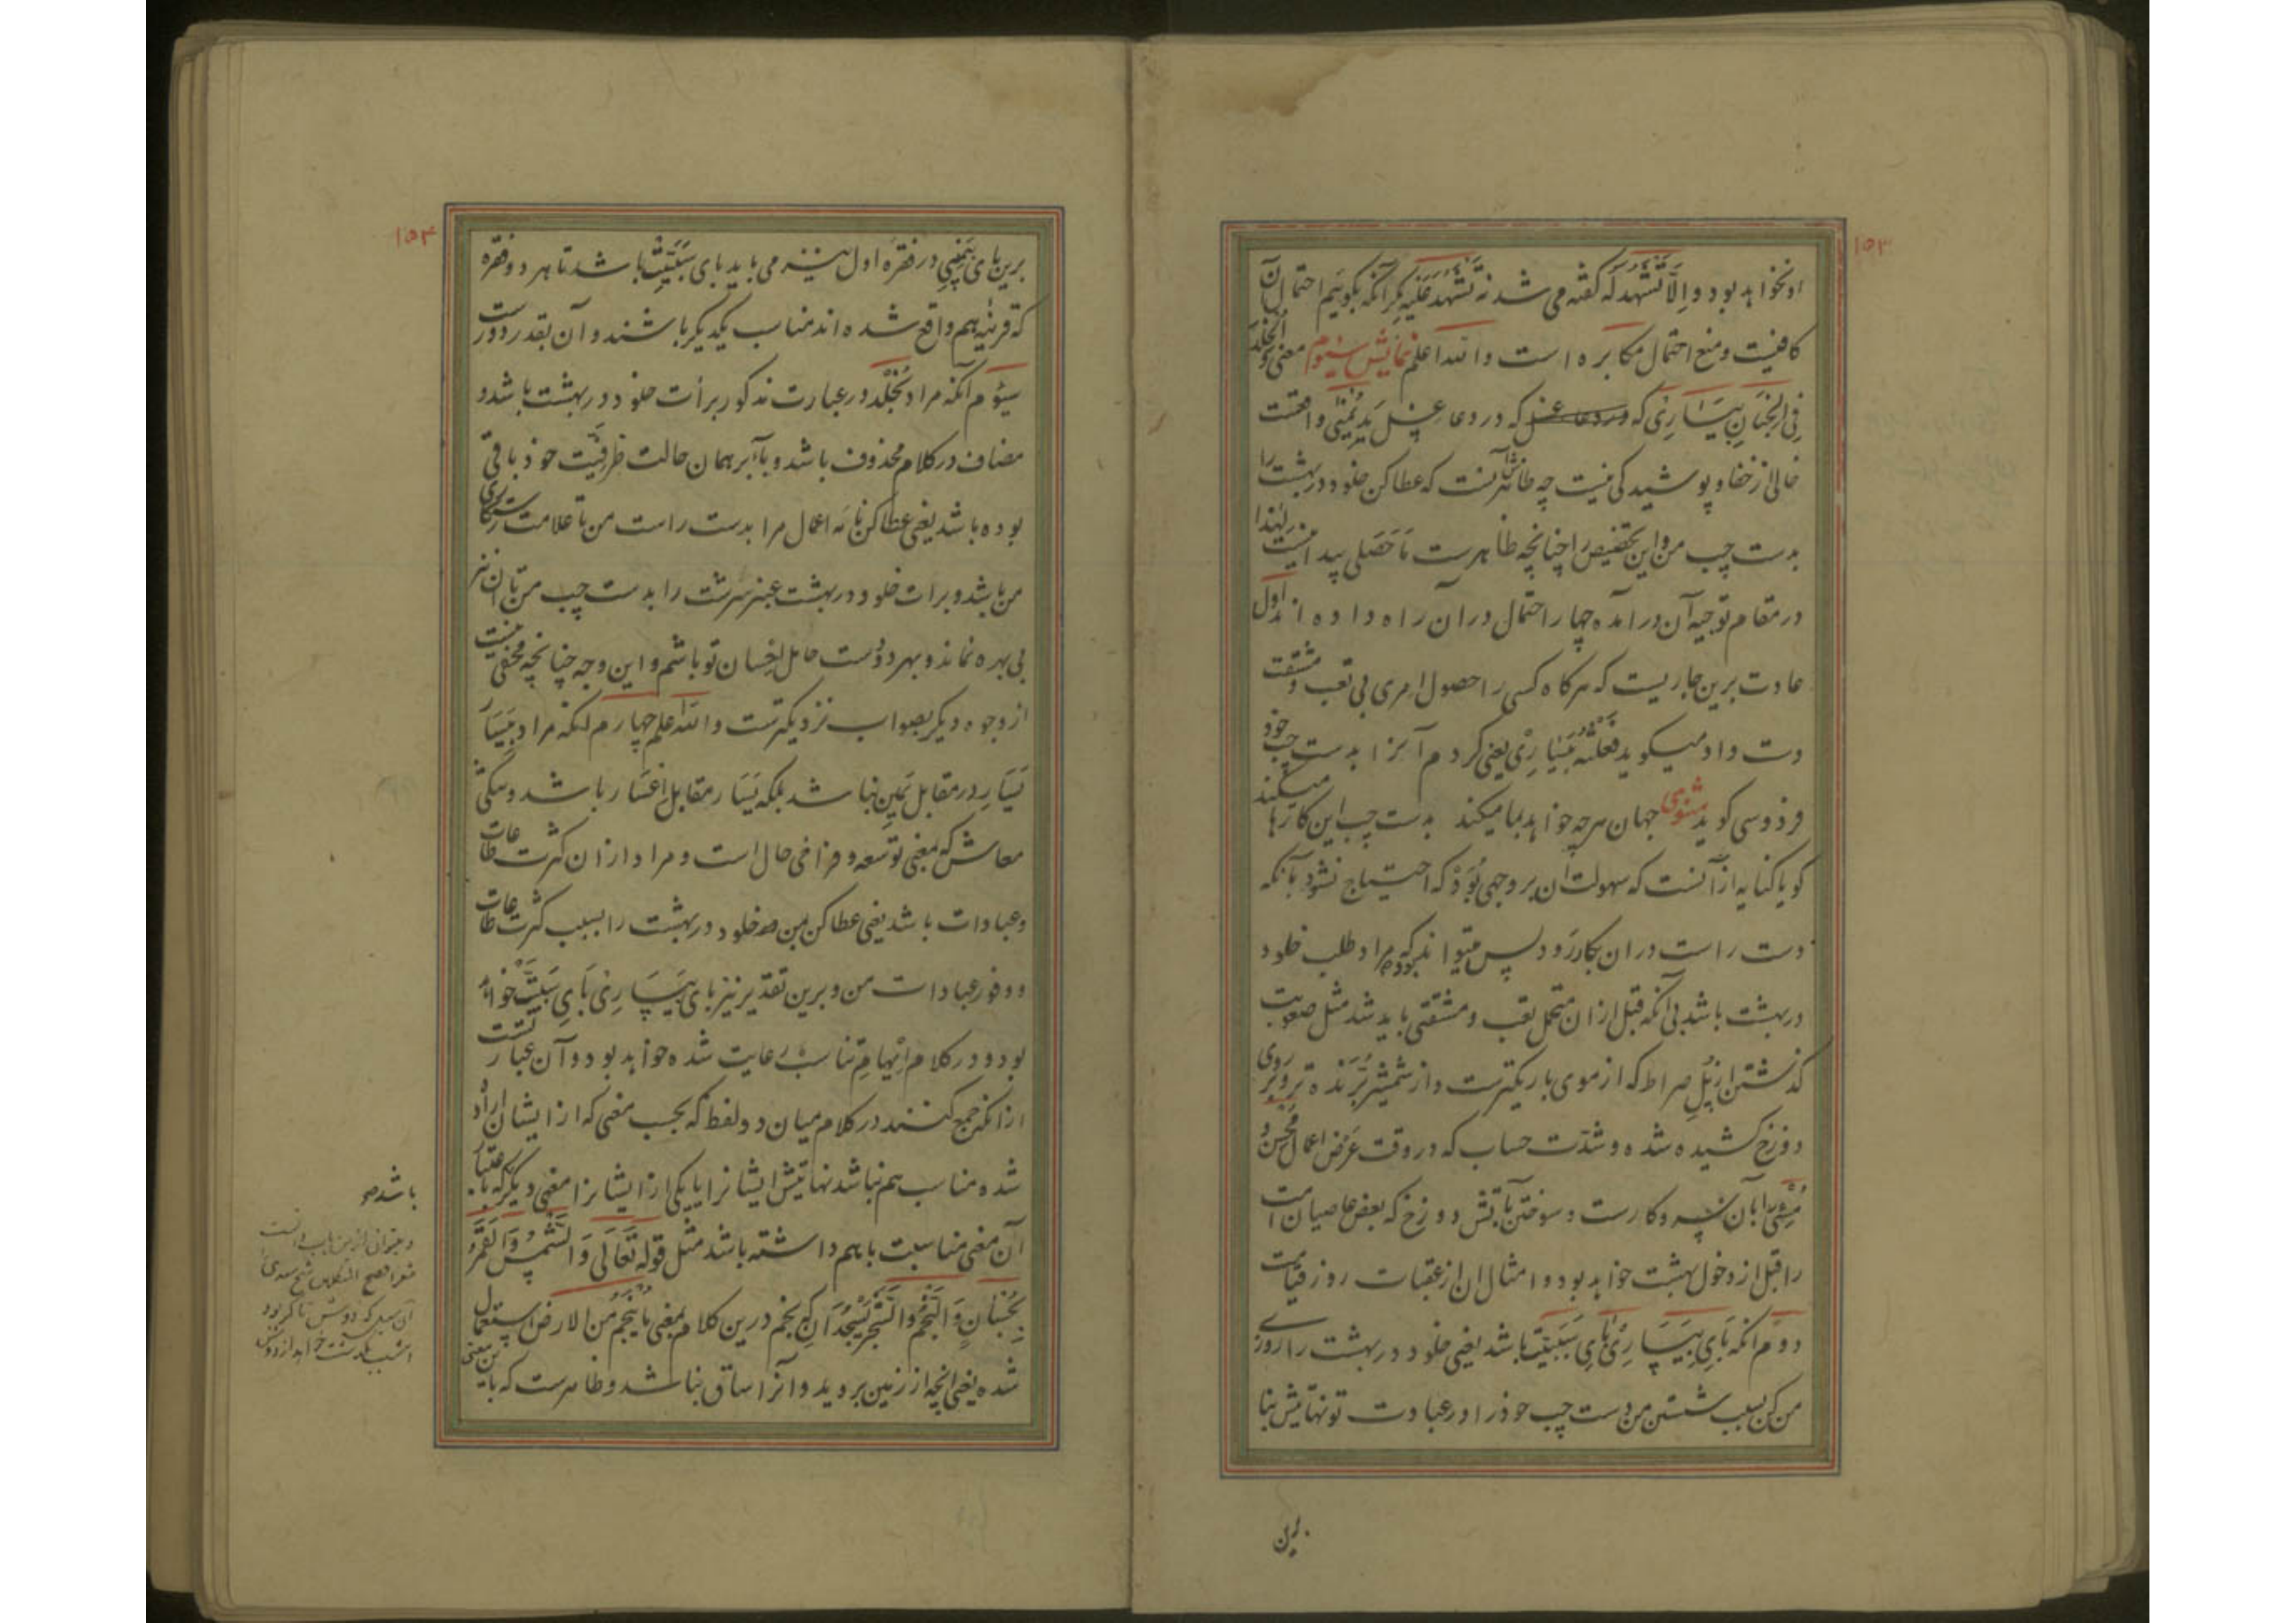 ۱۵۳
او نخواهد بود و اِلّا تَشْهَدُ لَه گفته می شد نه تَشْهَدُ عَلَیْهِ مگر آنکه بگوییم احتمال آن
کافیست و منع احتمال مکابره است والله اعلم نمایش سیوم معنی وَالخُلْدَ
فِی الجِنَانِ بِیَسَارِی که در دعا غسل که در دعا غسل ید یُمنی واقعست
خالی از خفا و پوشیدگی نیست چه ظاهرش آنست که عطا کن خلود در بهشت را
بدست چپ من و این تخصیص را چنانچه ظاهرست مَا حَصَلی پیدا نیست لهٰذا
در مقام توجیه آن در آمده چهار احتمال در آن راه داده اند اول
عادت برین جاریست که هرگاه کسی را حصول امری بی تعب و مشقت
دست داد میگوید فَعَلْتُهُ بِیَسَارِی یعنی کردم آنرا بدست چپ خود
فردوسی گوید مثنوی جهان هرچه خواهد بما میکند بدست چپ این کارها میکند
گویا کنایه از آنست که سهولت آن بر وجهی بُوَد که احتیاج نشود بآنکه
دست راست در آن بکار رَوَد پس میتواند که مراد طلب خلود
در بهشت باشد بی آنکه قبل از ان متحمل تعب و مشقتی باید شد مثل صعوبت
گذشتن از پُلِ صراط که از موی باریکترست و از شمشیر بُرَنده تر و بر روی
دوزخ کشیده شده و شدّت حساب که در وقت عَرض اعمال مُحسن و
مُسِئ را بآن سر و کارست و سوختن بآتش دوزخ که بعض عاصیان امت
را قبل از دخول بهشت خواهد بود و امثال ان از عقبات روز قیامت
دوم انکه بَایِ بِیَسَارِی بَایِ سَبَبِیَّت باشد یعنی خلود در بهشت را روزی
من کن بسبب شستن من دست چپ خود را در عبادت تو نهایتش بنا
برین
۱۵۴
برین بای بِیَمِینِی در فقرهٔ اول نیز می باید بای سَبَبِیَّت باشد تا هر دو فقره
که قرینهٔ هم واقع شده اند مناسب یکدیگر باشند و آن بقدر دورست
سیوم آنکه مراد بخُلْد در عبارت مذکور برأت خلود در بهشت باشد و
مضاف در کلام محذوف باشد و باء بر همان حالت ظرفیّت خود باقی
بوده باشد یعنی عطا کن نامَه اعمال مرا بدست راست من تا علامت رستگاری
من باشد و برات خلود در بهشت عنبر سرشت را بدست چپ من تا آن نیز
بی بهره نماند و بهر دو دست حامل احسان تو باشم و این وجه چنانچه مخفی نیست
از وجوه دیگر بصواب نزدیکترست والله اعلم چهارم انکه مراد بِیَسَار
یَسَارِ در مقابل یَمِین نباشد بلکه یَسَار مقابل اِعْسَار باشد و نیکئ
معاش که بمعنی توسعه و فراخی حال است و مراد از ان کثرت طاعات
و عبادات باشد یعنی عطا کن بمن خلود در بهشت را بسبب کثرت طاعات
و وفور عبادات من و برین تقدیر نیز بای بِیَسَارِی بَایِ سَبَبِیَّت خواهد
بود و در کلام اِیْهَامِ تناسب رعایت شده خواهد بود و آن عبارتست
از انکه جمع کنند در کلام میان دو لفظ که بحسب معنی که از ایشان اراده
شده مناسب هم نباشد نهایتش ایشانرا یا یکی از ایشانرا معنی دیگر که باعتبار
آن معنی مناسبت با هم داشته باشد مثل قوله تَعَالَی وَالشَّمْسُ وَالْقَمَرُ
بِحُسْبَانٍ وَالنَّجْمُ وَالشَّجَرُ یَسْجُدَانِ که نجم درین کلام بمعنی مَا یَنْجُمُ مِنَ الارض استعمال
شده یعنی انچه از زمین بروید و انرا ساق نباشد و ظاهرست که باین معنی
باشد صح
آن سبد که دوش تا کمر بود